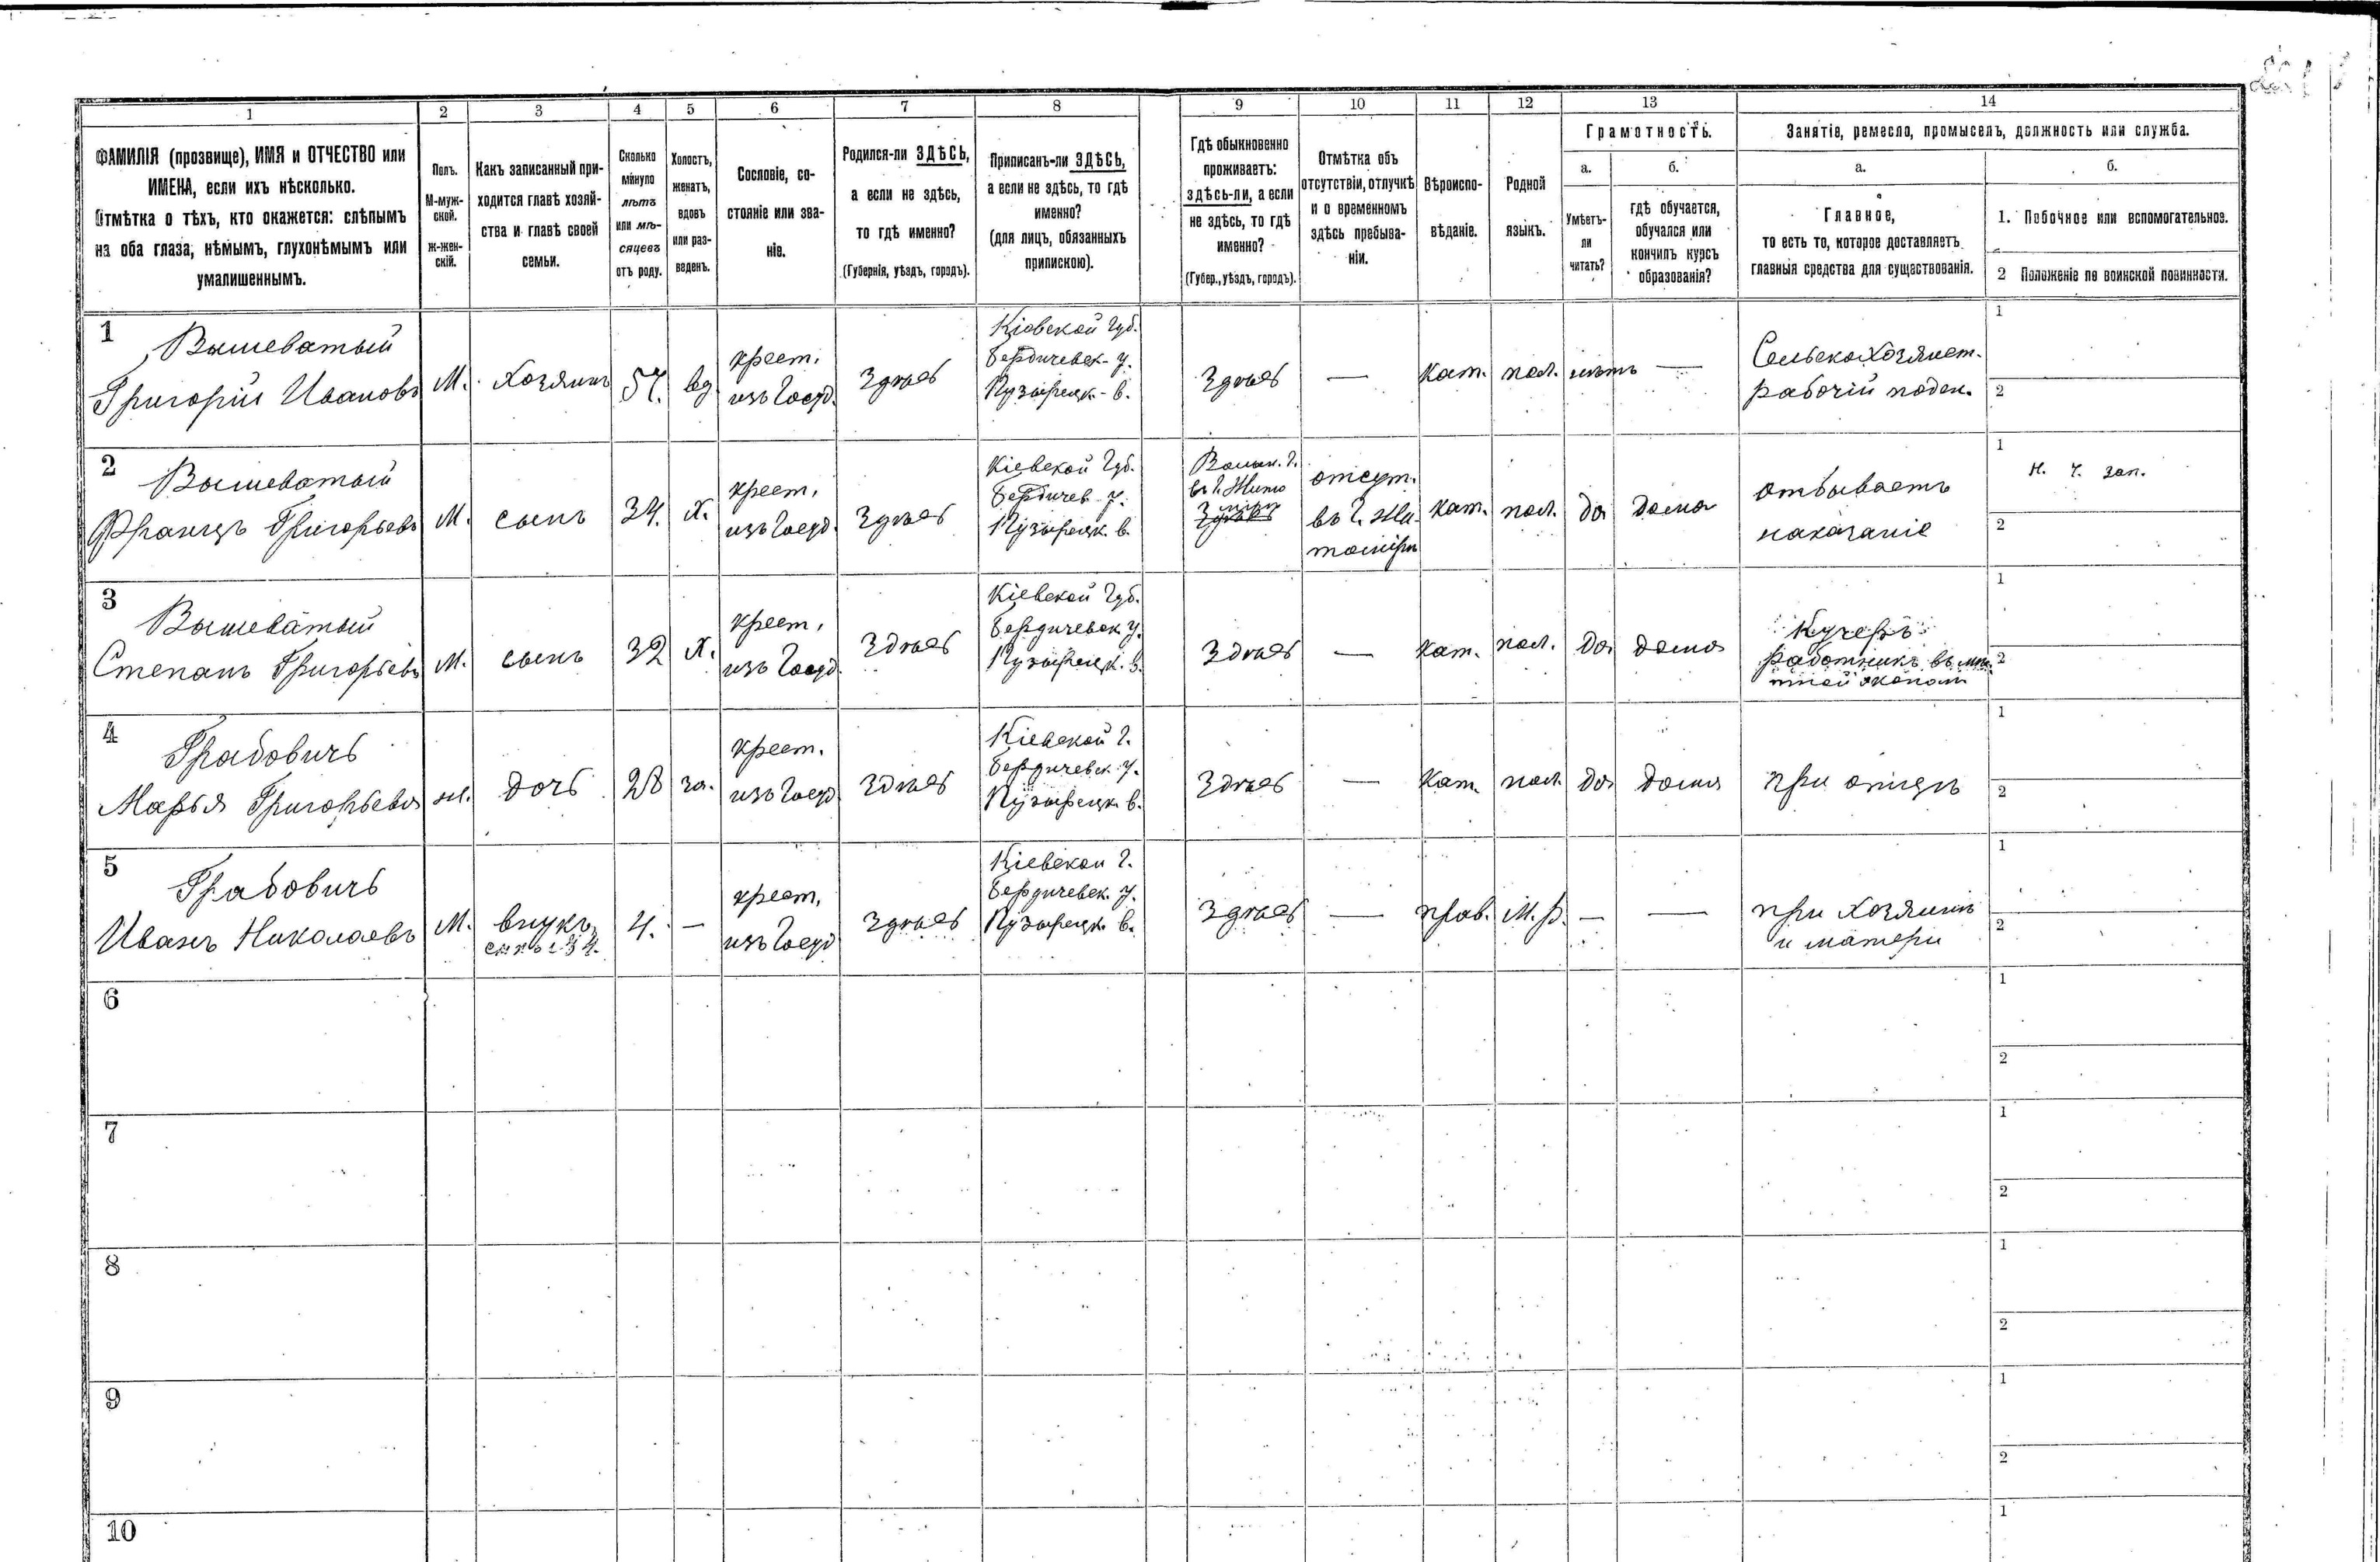 1 2 3 4 5 6 7 8 9 10 11 12 13 14
ФАМИЛІЯ (прозвище), ИМЯ и ОТЧЕСТВО или
ИМЕНА, если ихъ нѣсколько.
Отмѣтка о тѣхъ, кто окажется: слѣпымъ
на оба глаза, нѣмымъ, глухонѣмымъ или
умалишеннымъ.
Полъ.
М-муж-
ской.
Ж-жен-
скій.
Какъ записанный при-
ходится главѣ хозяй-
ства и главѣ своей
семьи.
Сколько
минуло
лѣтъ
или мѣ-
сяцевъ
отъ роду.
Холостъ,
женатъ,
вдовъ
или раз-
веденъ.
Сословіе, со-
стояніе или зва-
ніе.
Родился-ли ЗДѢСЬ,
а если не здѣсь,
то гдѣ именно?
(Губернія, уѣздъ, городъ).
Приписанъ-ли ЗДѢСЬ,
а если не здѣсь, то гдѣ
именно?
(для лицъ, обязанныхъ
припискою).
Гдѣ обыкновенно
проживаетъ:
здѣсь-ли, а если
не здѣсь, то гдѣ
именно?
(Губер., уѣздъ, городъ).
Отмѣтка объ
отсутствіи, отлучкѣ
и о временномъ
здѣсь пребыва-
ніи.
Вѣроиспо-
вѣданіе.
Родной
языкъ.
Грамотность.
а.
Умѣетъ-
ли
читать?
б.
гдѣ обучается,
обучался или
кончилъ курсъ
образованія?
Занятіе, ремесло, промыселъ, должность или служба.
а.
Главное,
то есть то, которое доставляетъ
главныя средства для существованія.
б.
1. Побочное или вспомогательное.
2 Положеніе по воинской повинности.
1
Вышеватый
Григорій Ивановъ
М.
Хозяинъ
57.
вд
крест.
изъ Госуд.
Здѣсь
Кіевской Губ.
Бердичевск- у.
Пузырецк- в.
Здѣсь
—
Кат.
пол.
нѣтъ
—
Сельскохозяйст.
рабочій поден.
1
2
2
Вышеватый
Францъ Григорьевъ
М.
сынъ
34.
х.
крест,
изъ Госуд.
Здѣсь
Кіевской Губ.
Бердичев- у.
Пузырецк. в.
Волын. г.
въ г. Жито
мирѣ
Здѣсь
отсут.
въ г. Жи
томірѣ
Кат.
пол.
да
дома
отбываетъ
наказаніе
1
н. ч. зап.
2
3
Вышеватый
Степанъ Григорьевъ
М.
сынъ
32
х.
крест,
изъ Госуд.
Здѣсь
Кіевской Губ.
Бердичевск у.
Пузырецк. в.
Здѣсь
—
Кат.
пол.
да
дома
Кучеръ
работникъ въ
эконом
1
2
4
Грабовичъ
Марья Григорьева
ж.
дочь
28
за.
крест.
изъ Госуд.
Здѣсь
Кіевской г.
Бердичевск. у.
Пузырецк. в.
Здѣсь
—
Кат.
пол.
да
дома
при отцѣ
1
2
5
Грабовичъ
Иванъ Николаевъ
М.
внукъ,
сынъ 4.
4.
—
крест,
изъ Госуд
Здѣсь
Кіевской г.
Бердичевск. у.
Пузырецк. в.
Здѣсь
—
прав.
М.р.
—
—
при хозяинѣ
и матери
1
2
6
1
2
7
1
2
8
1
2
9
1
2
10
1